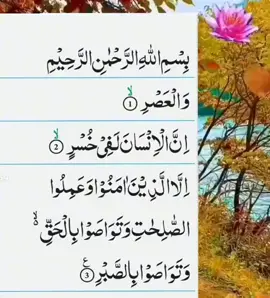 بِسْمِ اللّٰهِ الرَّحْمٰنِ الرَّحِيْمِ
وَالْعَصْرِ ۙ ﴿۱﴾
اِنَّ الْاِنْسَانَ لَفِیْ خُسْرٍ ۙ ﴿۲﴾
اِلَّا الَّذِیْنَ اٰمَنُوْا وَ عَمِلُوا
الصّٰلِحٰتِ وَ تَوَاصَوْا بِالْحَقِّ ۙ۬
وَ تَوَاصَوْا بِالصَّبْرِ ﴿۳﴾ ع